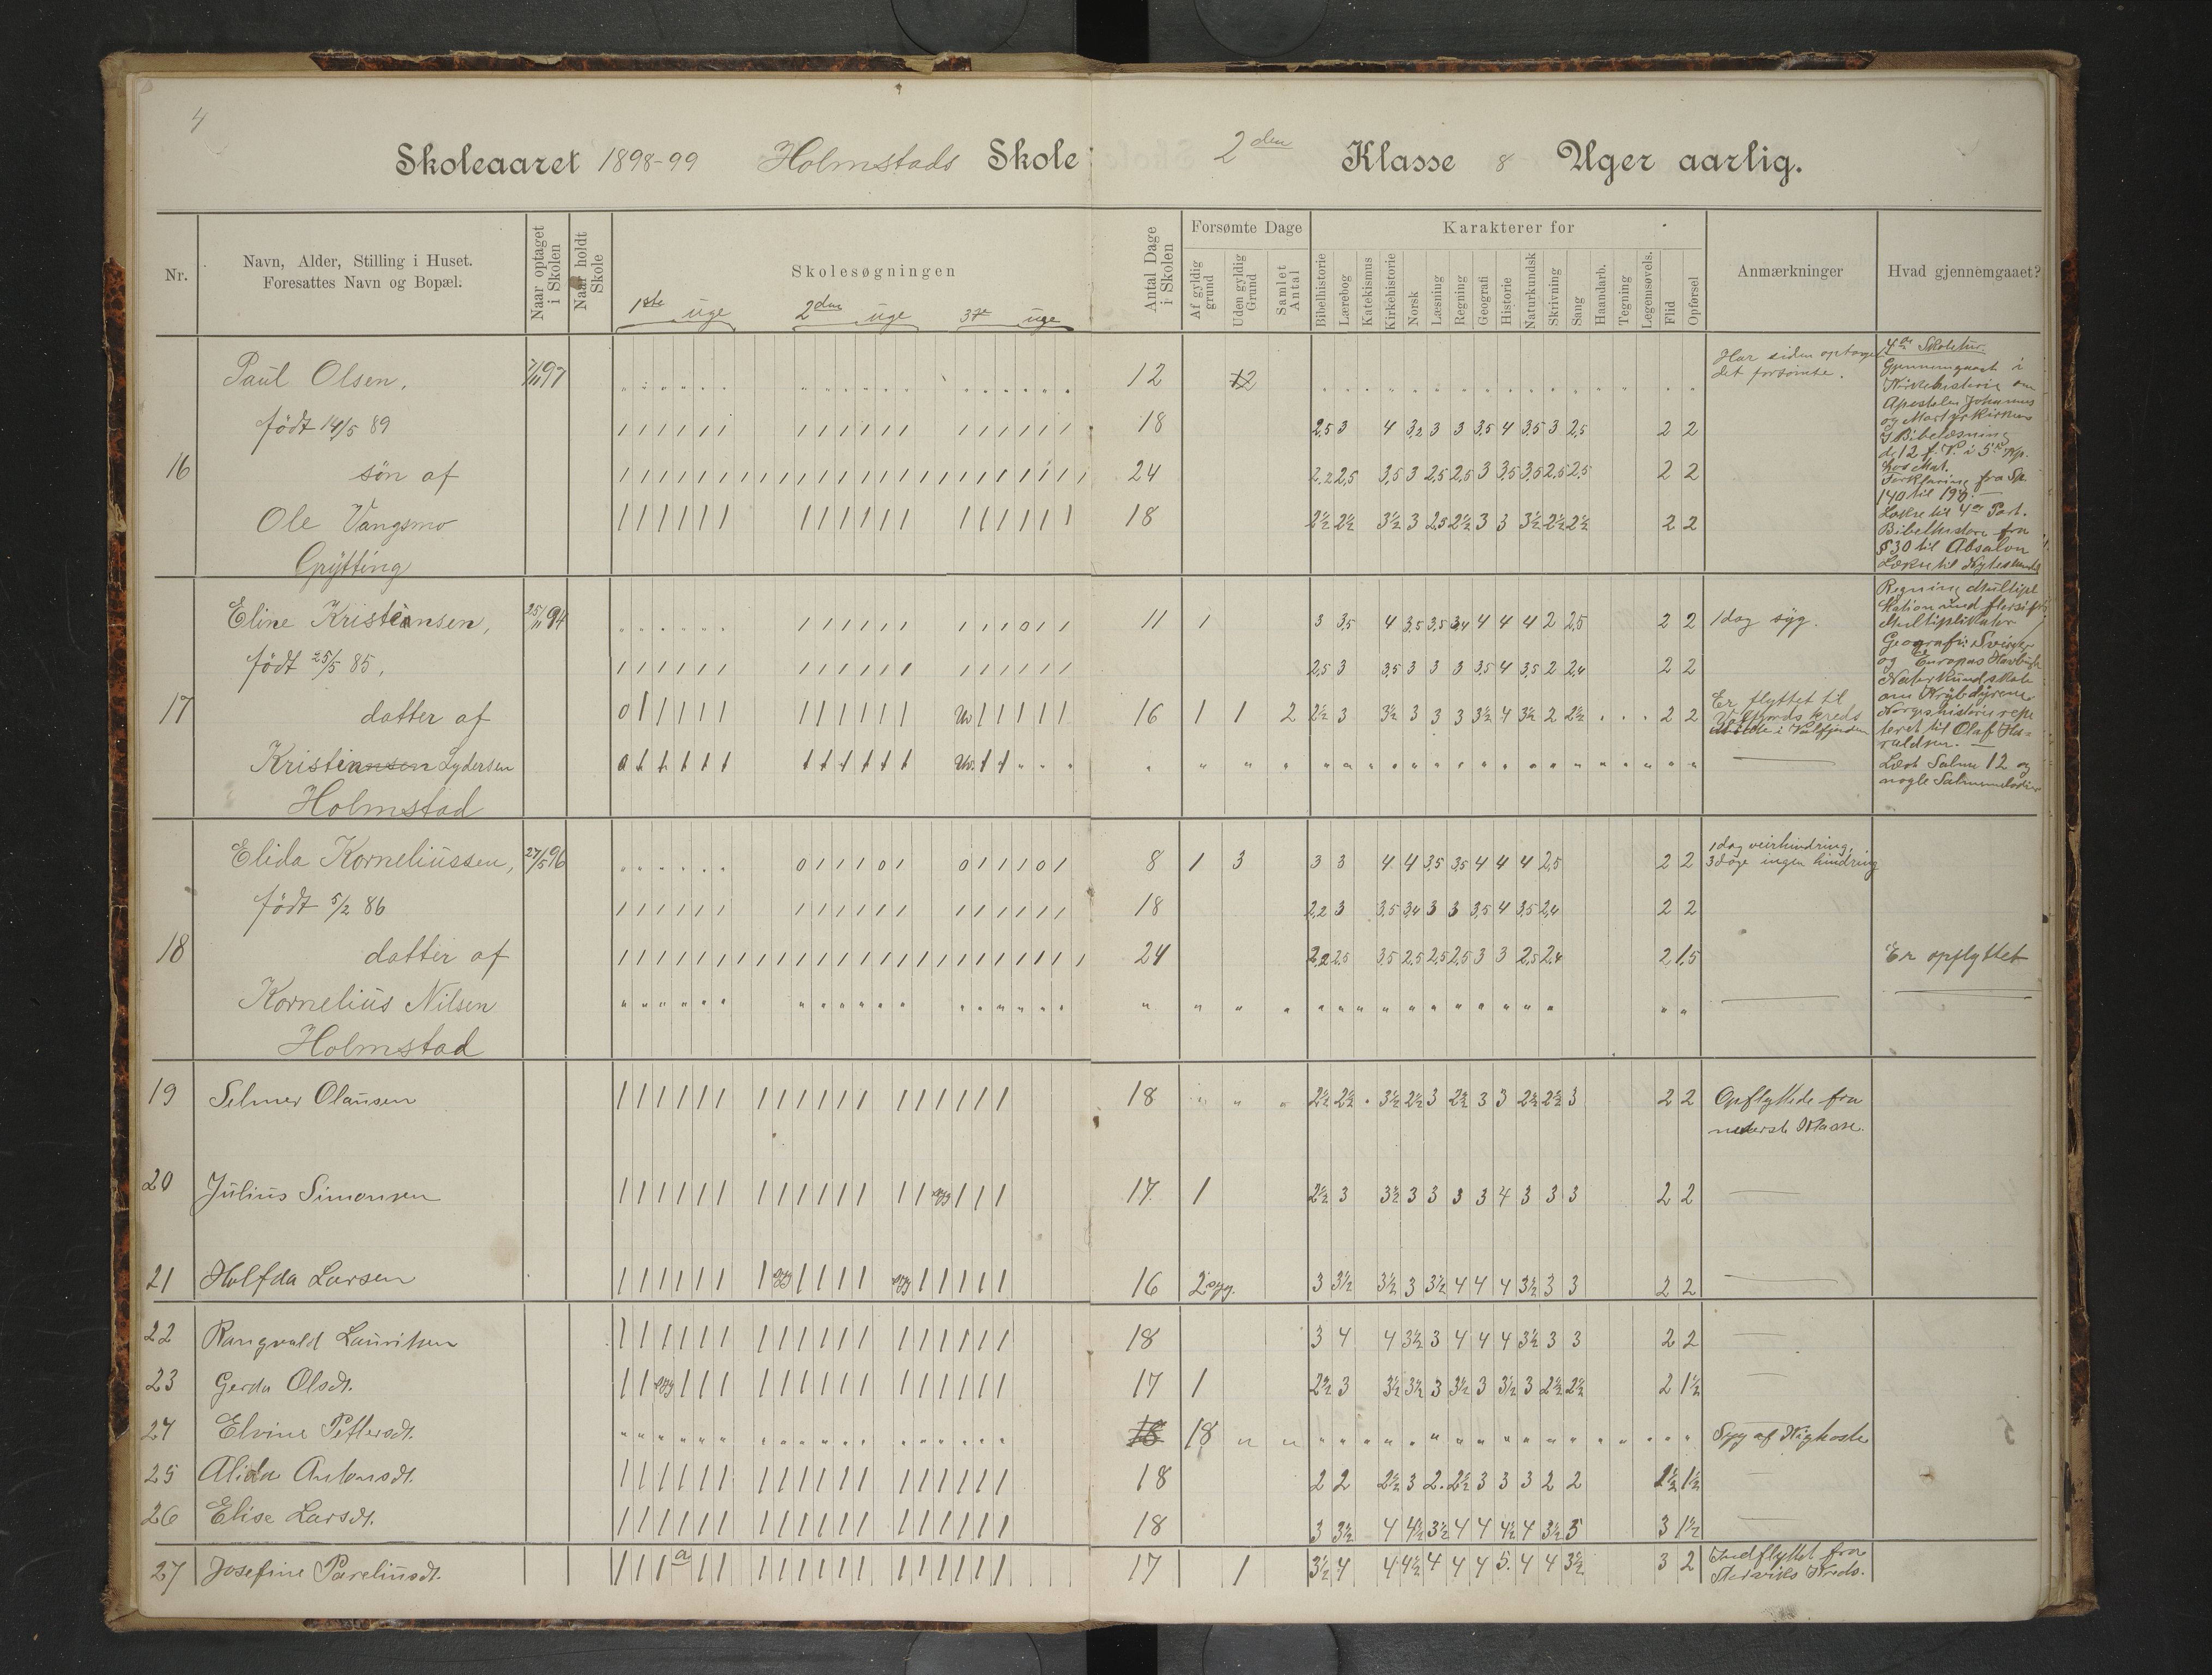 4
Skoleaaret 1898-99 Holmstads Skole 2den Klasse 8 Uger aarlig.
Nr.
Navn, Alder, Stilling i Huset.
Foresattes Navn og Bopæl.
Naar optaget i Skolen
Naar holdt Skole
Skolesøgningen
1ste uge 2den uge 3die uge
Antal Dage i Skolen
Forsømte Dage
Af gyldig grund
Uden gyldig Grund
Samlet Antal
Karakterer for
Bibelhistorie
Lærebog
Katekismus
Kirkehistorie
Norsk
Læsning
Regning
Geografi
Historie
Naturkundsk
Skrivning
Sang
Haandarb.
Tegning
Legemsøvels.
Flid
Opførsel
Anmærkninger
Hvad gjennemgaaet?
16
Paul Olsen, 7/11 97 12 12 Har siden optaget
det forsømte.
født 14/5 89 18 2,5 3 4 3,2 3 3 3,5 4 3,5 3 2,5 2 2
søn af 24 2,2 2,5 3,5 3 2,5 2,5 3 3,5 3,5 2,5 2,5 2 2
Ole Vangsmo 18 2½ 2½ 3½ 3 2,5 2½ 3 3 3½ 2½ 2½ 2 2
Grytting
4de Skoletur.
Gjennemgaaet i
Kirkehistorie om
Apostelen Johannes
og Martyrkirken
I Bibelæsning
de 12 f. V. i 5te Kp.
hos Mat.
Forklaring fra Sp.
140 til 190.
Lækse til 4de Part.
Bibelhistorie fra
§30 til Absalon
17
Eline Kristiansen, 25/11 94 11 1 3 3,5 4 3,5 3,5 3,4 4 4 4 2 2,5 2 2 1 dag syg.
født 25/5 85, 2,5 3 3,5 3 3 3 3,5 4 3,5 2 2,4 2 2
datter af 16 1 1 2 2½ 3 3½ 3 3 3 3½ 4 3½ 2 2½ 2 2 Er flyttet til
Kristiansen Lydersen
Holmstad
Regning Multipli
kation med flersifr
Multiplikator
Geografi: Sveits
og Europas Havbugt
Naturkundskab
om Krybdyrene
Norgeshistorie repe
teret til Olaf Ha-
raldsen.
Lært Salme 12 og
nogle Salmemelodier
18
Elida Korneliussen, 27/5 96 8 1 3 3 3 4 4 3,5 3,5 4 4 4 2,5 2 2 1 dag veirhindring,
3 dage ingen hindring
født 5/2 86 18 2,2 3 3,5 3,4 3 3 3,5 4 3,5 2,4 2 2
datter af 24 2,2 2,5 3,5 2,5 2,5 2,5 3 3 2,5 2,4 2 1,5 Er opflyttet
Kornelius Nilsen
Holmstad
19 Selmer Olausen 18 2½ 2½ 3½ 2½ 3 2½ 3 3 2½ 2½ 3 2 2 Opflyttede fra
nederste Klasse.
20 Julius Simonsen syg 17. 1 2½ 3 3½ 3 3 3 3 4 3 3 3 2 2
21 Halfda Larsen syg syg 16 2 syg. 3 3½ 3½ 3 3½ 4 4 4 3½ 3 3 2 2
22 Rangvald Lauritsen 18 3 4 4 3½ 3 4 4 4 3½ 3 3 2 2
23 Gerda Olsdt. syg 17 1 2½ 3 3½ 3½ 3 3½ 3 3½ 3 2½ 2½ 2 1½
24 Elvine Pettersdt. 18 18 Syg af Kighoste
25 Alida Antonsdt. 18 2 2 2½ 3 2. 2½ 3 3 3 2 2 1½ 1½
26 Elise Larsdt. 18 3 3½ 4 4½ 3½ 4 4 4½ 4 3½ 5 3 1½
27 Josefine Pareliusdt. a 17 1 3½ 4 4 4½ 4 4 4 5. 4 4 3½ 3 2 Indflyttet fra
Kreds.